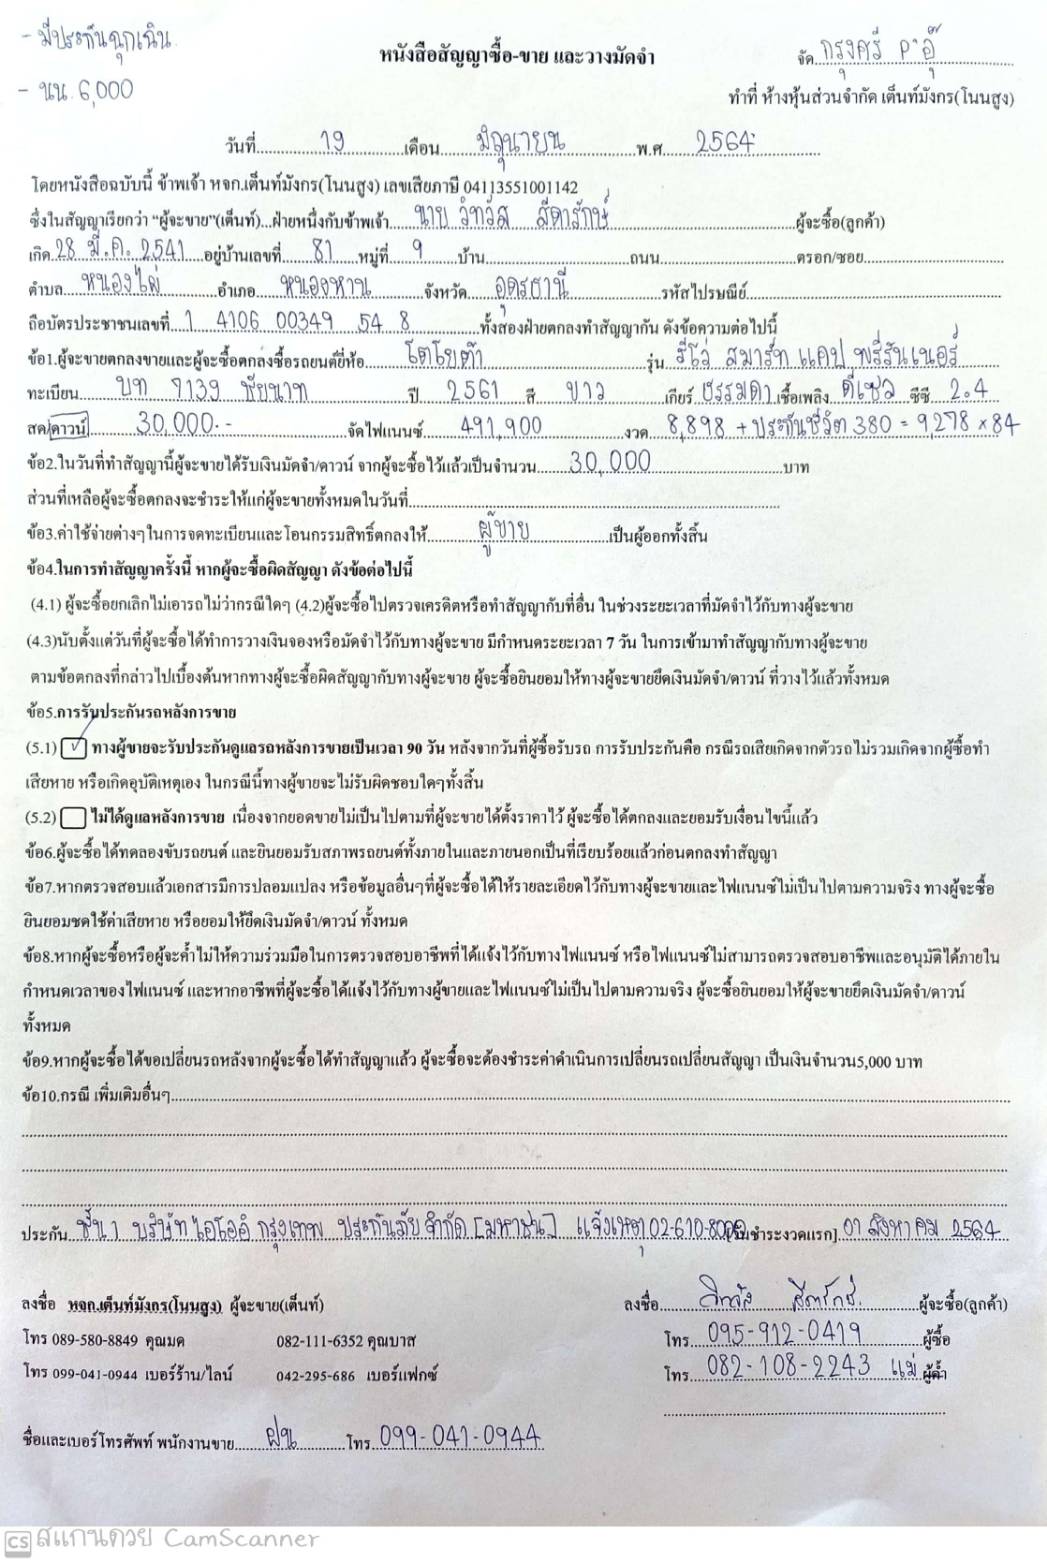 - มีประกันฉุกเฉิน
- นน 6,000
หนังสือสัญญาซื้อ-ขาย และวางมัดจำ
จัด กรุงศรี P'อุ๊
ทำที่ ห้างหุ้นส่วนจำกัด เต็นท์มังกร(โนนสูง)
วันที่ 19 เดือน มิถุนายน พ.ศ. 2564
โดยหนังสือฉบับนี้ ข้าพเจ้า หจก.เต็นท์มังกร(โนนสูง) เลขเสียภาษี 04113551001142
ซึ่งในสัญญาเรียกว่า "ผู้จะขาย"(เต็นท์)...ฝ่ายหนึ่งกับข้าพเจ้า นาย วิทวัส สีดารักษ์ ผู้จะซื้อ(ลูกค้า)
เกิด 28 มี.ค. 2541 อยู่บ้านเลขที่ 81 หมู่ที่ 9 บ้าน ถนน ตรอก/ซอย
ตำบล หนองไผ่ อำเภอ หนองหาน จังหวัด อุดรธานี รหัสไปรษณีย์
ถือบัตรประชาชนเลขที่ 1 4106 00349 54 8 ทั้งสองฝ่ายตกลงทำสัญญากัน ดังข้อความต่อไปนี้
ข้อ1.ผู้จะขายตกลงขายและผู้จะซื้อตกลงซื้อรถยนต์ยี่ห้อ โตโยต้า รุ่น รีโว่ สมาร์ท แคป พรีรันเนอร์
ทะเบียน บท 7139 ชัยนาท ปี 2561 สี ขาว เกียร์ ธรรมดา เชื้อเพลิง ดีเซล ซีซี 2.4
สด/ดาวน์ 30,000.- จัดไฟแนนซ์ 491,900 งวด 8,898 + ประกันชีวิต 380 = 9,278 x 84
ข้อ2.ในวันที่ทำสัญญานี้ผู้จะขายได้รับเงินมัดจำ/ดาวน์ จากผู้จะซื้อไว้แล้วเป็นจำนวน 30,000 บาท
ส่วนที่เหลือผู้จะซื้อตกลงจะชำระให้แก่ผู้จะขายทั้งหมดในวันที่
ข้อ3.ค่าใช้จ่ายต่างๆในการจดทะเบียนและโอนกรรมสิทธิ์ตกลงให้ ผู้ขาย เป็นผู้ออกทั้งสิ้น
ข้อ4.ในการทำสัญญาครั้งนี้ หากผู้จะซื้อผิดสัญญา ดังข้อต่อไปนี้
(4.1) ผู้จะซื้อยกเลิกไม่เอารถไม่ว่ากรณีใดๆ (4.2)ผู้จะซื้อไปตรวจเครดิตหรือทำสัญญากับที่อื่น ในช่วงระยะเวลาที่มัดจำไว้กับทางผู้จะขาย
(4.3)นับตั้งแต่วันที่ผู้จะซื้อได้ทำการวางเงินจองหรือมัดจำไว้กับทางผู้จะขาย มีกำหนดระยะเวลา 7 วัน ในการเข้ามาทำสัญญากับทางผู้จะขาย
ตามข้อตกลงที่กล่าวไปเบื้องต้นหากทางผู้จะซื้อผิดสัญญากับทางผู้จะขาย ผู้จะซื้อยินยอมให้ทางผู้จะขายยึดเงินมัดจำ/ดาวน์ ที่วางไว้แล้วทั้งหมด
ข้อ5.การรับประกันรถหลังการขาย
(5.1) ✓ ทางผู้ขายจะรับประกันดูแลรถหลังการขายเป็นเวลา 90 วัน หลังจากวันที่ผู้ซื้อรับรถ การรับประกันคือ กรณีรถเสียเกิดจากตัวรถไม่รวมเกิดจากผู้ซื้อทำ
เสียหาย หรือเกิดอุบัติเหตุเอง ในกรณีนี้ทางผู้ขายจะไม่รับผิดชอบใดๆทั้งสิ้น
(5.2) ไม่ได้ดูแลหลังการขาย เนื่องจากยอดขายไม่เป็นไปตามที่ผู้จะขายได้ตั้งราคาไว้ ผู้จะซื้อได้ตกลงและยอมรับเงื่อนไขนี้แล้ว
ข้อ6.ผู้จะซื้อได้ทดลองขับรถยนต์ และยินยอมรับสภาพรถยนต์ทั้งภายในและภายนอกเป็นที่เรียบร้อยแล้วก่อนตกลงทำสัญญา
ข้อ7.หากตรวจสอบแล้วเอกสารมีการปลอมแปลง หรือข้อมูลอื่นๆที่ผู้จะซื้อได้ให้รายละเอียดไว้กับทางผู้จะขายและไฟแนนซ์ไม่เป็นไปตามความจริง ทางผู้จะซื้อ
ยินยอมชดใช้ค่าเสียหาย หรือยอมให้ยึดเงินมัดจำ/ดาวน์ ทั้งหมด
ข้อ8.หากผู้จะซื้อหรือผู้จะค้ำไม่ให้ความร่วมมือในการตรวจสอบอาชีพที่ได้แจ้งไว้กับทางไฟแนนซ์ หรือไฟแนนซ์ไม่สามารถตรวจสอบอาชีพและอนุมัติได้ภายใน
กำหนดเวลาของไฟแนนซ์ และหากอาชีพที่ผู้จะซื้อได้แจ้งไว้กับทางผู้ขายและไฟแนนซ์ไม่เป็นไปตามความจริง ผู้จะซื้อยินยอมให้ผู้จะขายยึดเงินมัดจำ/ดาวน์
ทั้งหมด
ข้อ9.หากผู้จะซื้อได้ขอเปลี่ยนรถหลังจากผู้จะซื้อได้ทำสัญญาแล้ว ผู้จะซื้อจะต้องชำระค่าดำเนินการเปลี่ยนรถเปลี่ยนสัญญา เป็นเงินจำนวน5,000 บาท
ข้อ10.กรณี เพิ่มเติมอื่นๆ
ประกัน ชั้น 1 บริษัท ไอโออิ กรุงเทพ ประกันภัย จำกัด [มหาชน] แจ้งเหตุ 02-610-8000 [วันชำระงวดแรก] 01 สิงหาคม 2564
ลงชื่อ หจก.เต็นท์มังกร(โนนสูง) ผู้จะขาย(เต็นท์) ลงชื่อ วิทวัส สีดารักษ์ ผู้จะซื้อ(ลูกค้า)
โทร 089-580-8849 คุณมด 082-111-6352 คุณบาส โทร 095-912-0419 ผู้ซื้อ
โทร 099-041-0944 เบอร์ร้าน/ไลน์ 042-295-686 เบอร์แฟกซ์ โทร 082-108-2243 แม่ ผู้ค้ำ
ชื่อและเบอร์โทรศัพท์ พนักงานขาย ฝน โทร 099-041-0944
CS สแกนด้วย CamScanner